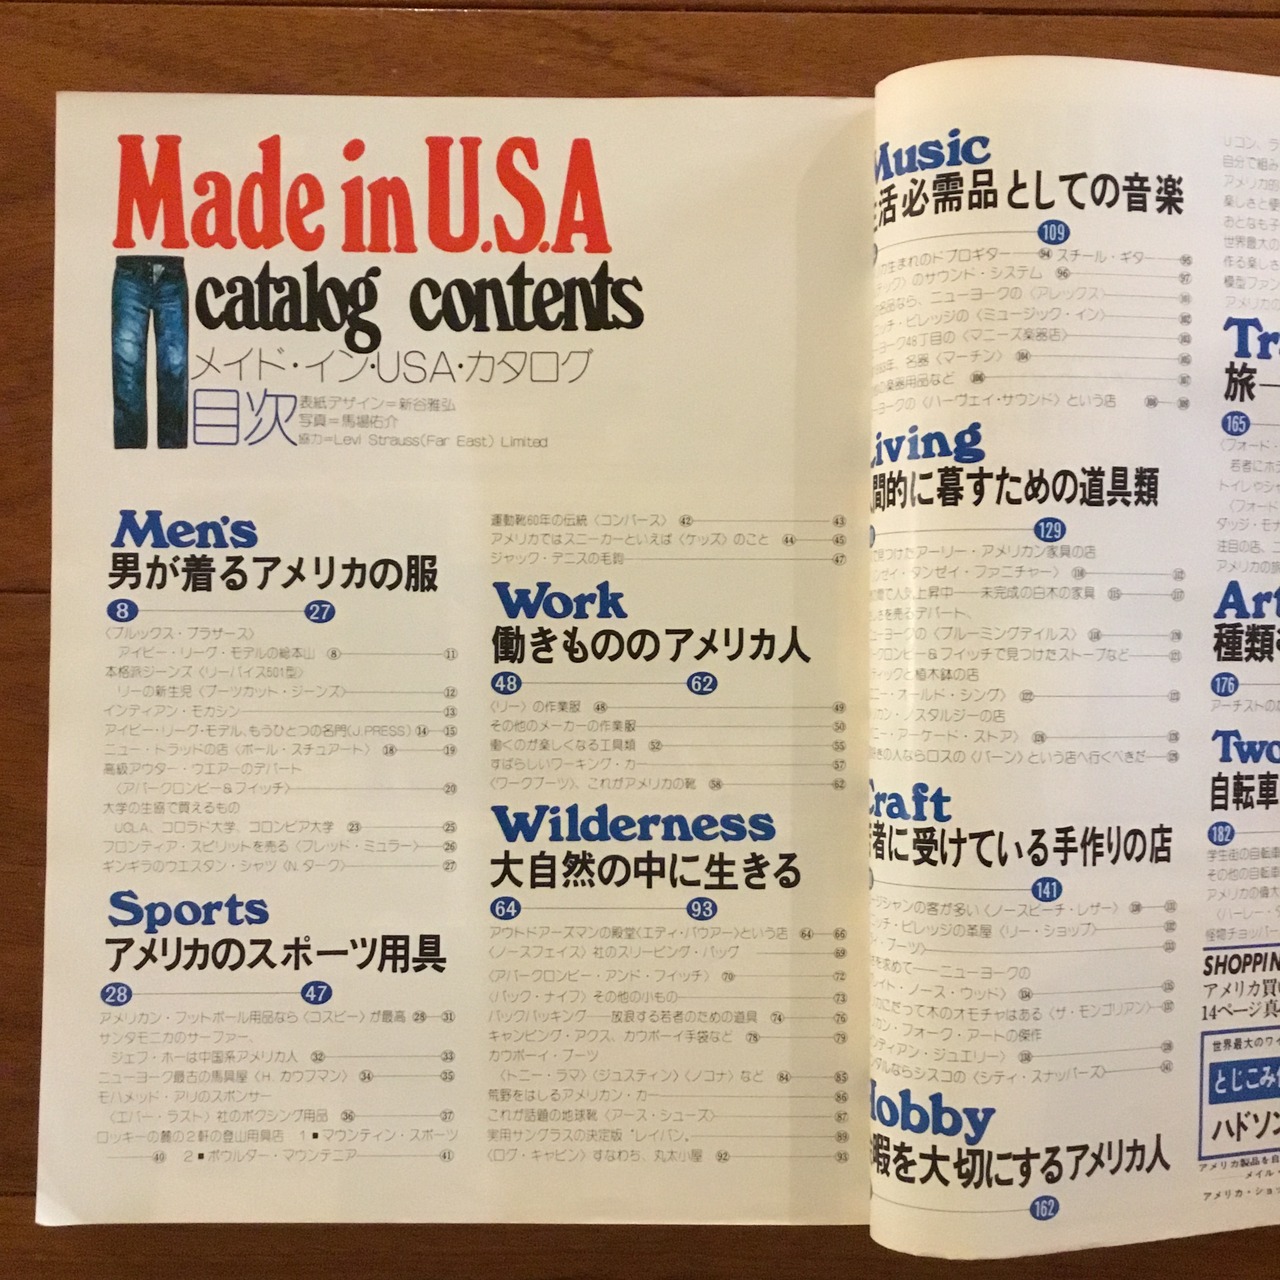 Made in U.S.A
catalog contents
メイド・イン・USA・カタログ
目次
表紙デザイン＝新谷雅弘
写真＝馬場佑介
協力＝Levi Strauss(Far East) Limited
Men's
男が着るアメリカの服
8 27
〈ブルックス・ブラザース〉
アイビー・リーグ・モデルの総本山 8 11
本格派ジーンズ〈リーバイス501型〉
リーの新生児〈ブーツカット・ジーンズ〉 12
インディアン・モカシン 13
アイビー・リーグ・モデル、もうひとつの名門〈J.PRESS〉 14 15
ニュー・トラッドの店〈ポール・スチュアート〉 18 19
高級アウター・ウエアーのデパート
〈アバークロンビー&フィッチ〉 20
大学の生協で買えるもの
UCLA、コロラド大学、コロンビア大学 23 25
フロンティア・スピリットを売る〈フレッド・ミュラー〉 26
ギンギラのウエスタン・シャツ〈N.ターク〉 27
Sports
アメリカのスポーツ用具
28 47
アメリカン・フットボール用品なら〈コスビー〉が最高 28 31
サンタモニカのサーファー、
ジェフ・ホーは中国系アメリカ人 32 33
ニューヨーク最古の馬具屋〈H.カウフマン〉 34 35
モハメッド・アリのスポンサー
〈エバー・ラスト〉社のボクシング用品 36 37
ロッキーの麓の2軒の登山用具店 1■マウンテン・スポーツ
40 2■ボウルダー・マウンテニア 41
運動靴60年の伝統〈コンバース〉 42 43
アメリカではスニーカーといえば〈ケッズ〉のこと 44 45
ジャック・テニスの毛鉤 47
Work
働きもののアメリカ人
48 62
〈リー〉の作業服 48 49
その他のメーカーの作業服 50
働くのが楽しくなる工具類 52 55
すばらしいワーキング・カー 57
〈ワークブーツ〉、これがアメリカの靴 58 62
Wilderness
大自然の中に生きる
64 93
アウトドアーズマンの殿堂〈エディ・バウアー〉という店 64 66
〈ノースフェイス〉社のスリーピング・バッグ 69
〈アバークロンビー・アンド・フィッチ〉 70 72
〈バック・ナイフ〉その他の小もの 73
バックパッキング――放浪する若者のための道具 74 76
キャンピング・アクス、カウボーイ手袋など 78 79
カウボーイ・ブーツ
〈トニー・ラマ〉〈ジュスティン〉〈ノコナ〉など 84 85
荒野をはしるアメリカン・カー 86
これが話題の地球靴〈アース・シューズ〉 87
実用サングラスの決定版“レイバン” 89
〈ログ・キャビン〉すなわち、丸太小屋 92 93
Music
活必需品としての音楽
109
生まれのドブロギター 94 スチール・ギター 95
のサウンド・システム 96 97
名品なら、ニューヨークの〈アレックス〉
ッチ・ビレッジの〈ミュージック・イン〉
ーヨーク48丁目の〈マニーズ楽器店〉
年、名器〈マーチン〉 104
の楽器用品など
ーヨークの〈ハーヴェイ・サウンド〉という店
Living
間的に暮すための道具類
129
見つけたアーリー・アメリカン家具の店
ンゼイ・タンゼイ・ファニチャー〉
で人気上昇中――未完成の白木の家具
を売るデパート、
ニューヨークの〈ブルーミングデイルス〉
ークロンビー&フィッチで見つけたストーブなど
ティックと植木鉢の店
ニー・オールド・シング〉
カン・ノスタルジーの店
ニー・アーケード・ストア〉
きの人ならロスの〈バーン〉という店へ行くべきだ
Craft
者に受けている手作りの店
141
ージシャンの客が多い〈ノースビーチ・レザー〉
ニッチ・ビレッジの革屋〈リー・ショップ〉
ン・ブーツ〉
を求めて――ニューヨークの
レイト・ノース・ウッド〉
こだって木のオモチャはある〈ザ・モンゴリアン〉
カン・フォーク・アートの傑作
ンディアン・ジュエリー〉
ダルならシスコの〈シティ・スナッパーズ〉
Hobby
暇を大切にするアメリカ人
162
Uコン、ラ
自分で組み
アメリカ的
楽しさと便
おとなも子
世界最大の
作る楽しさ
模型ファン
アメリカの
Tr
旅―
165
〈フォード・
若者にホテ
トイレやシャ
〈フォード
ダッジ・モー
注目の店、
アメリカの旅
Art
種類
176
アーチストの
Two
自転車
182
学生街の自転車
その他の自転車
アメリカの偉大
〈ハーレー・
怪物チョッパー
SHOPPIN
アメリカ買い
14ページ真
世界最大のワイ
とじこみ
ハドソン
アメリカ製品を自
メイル・
アメリカ・ショ